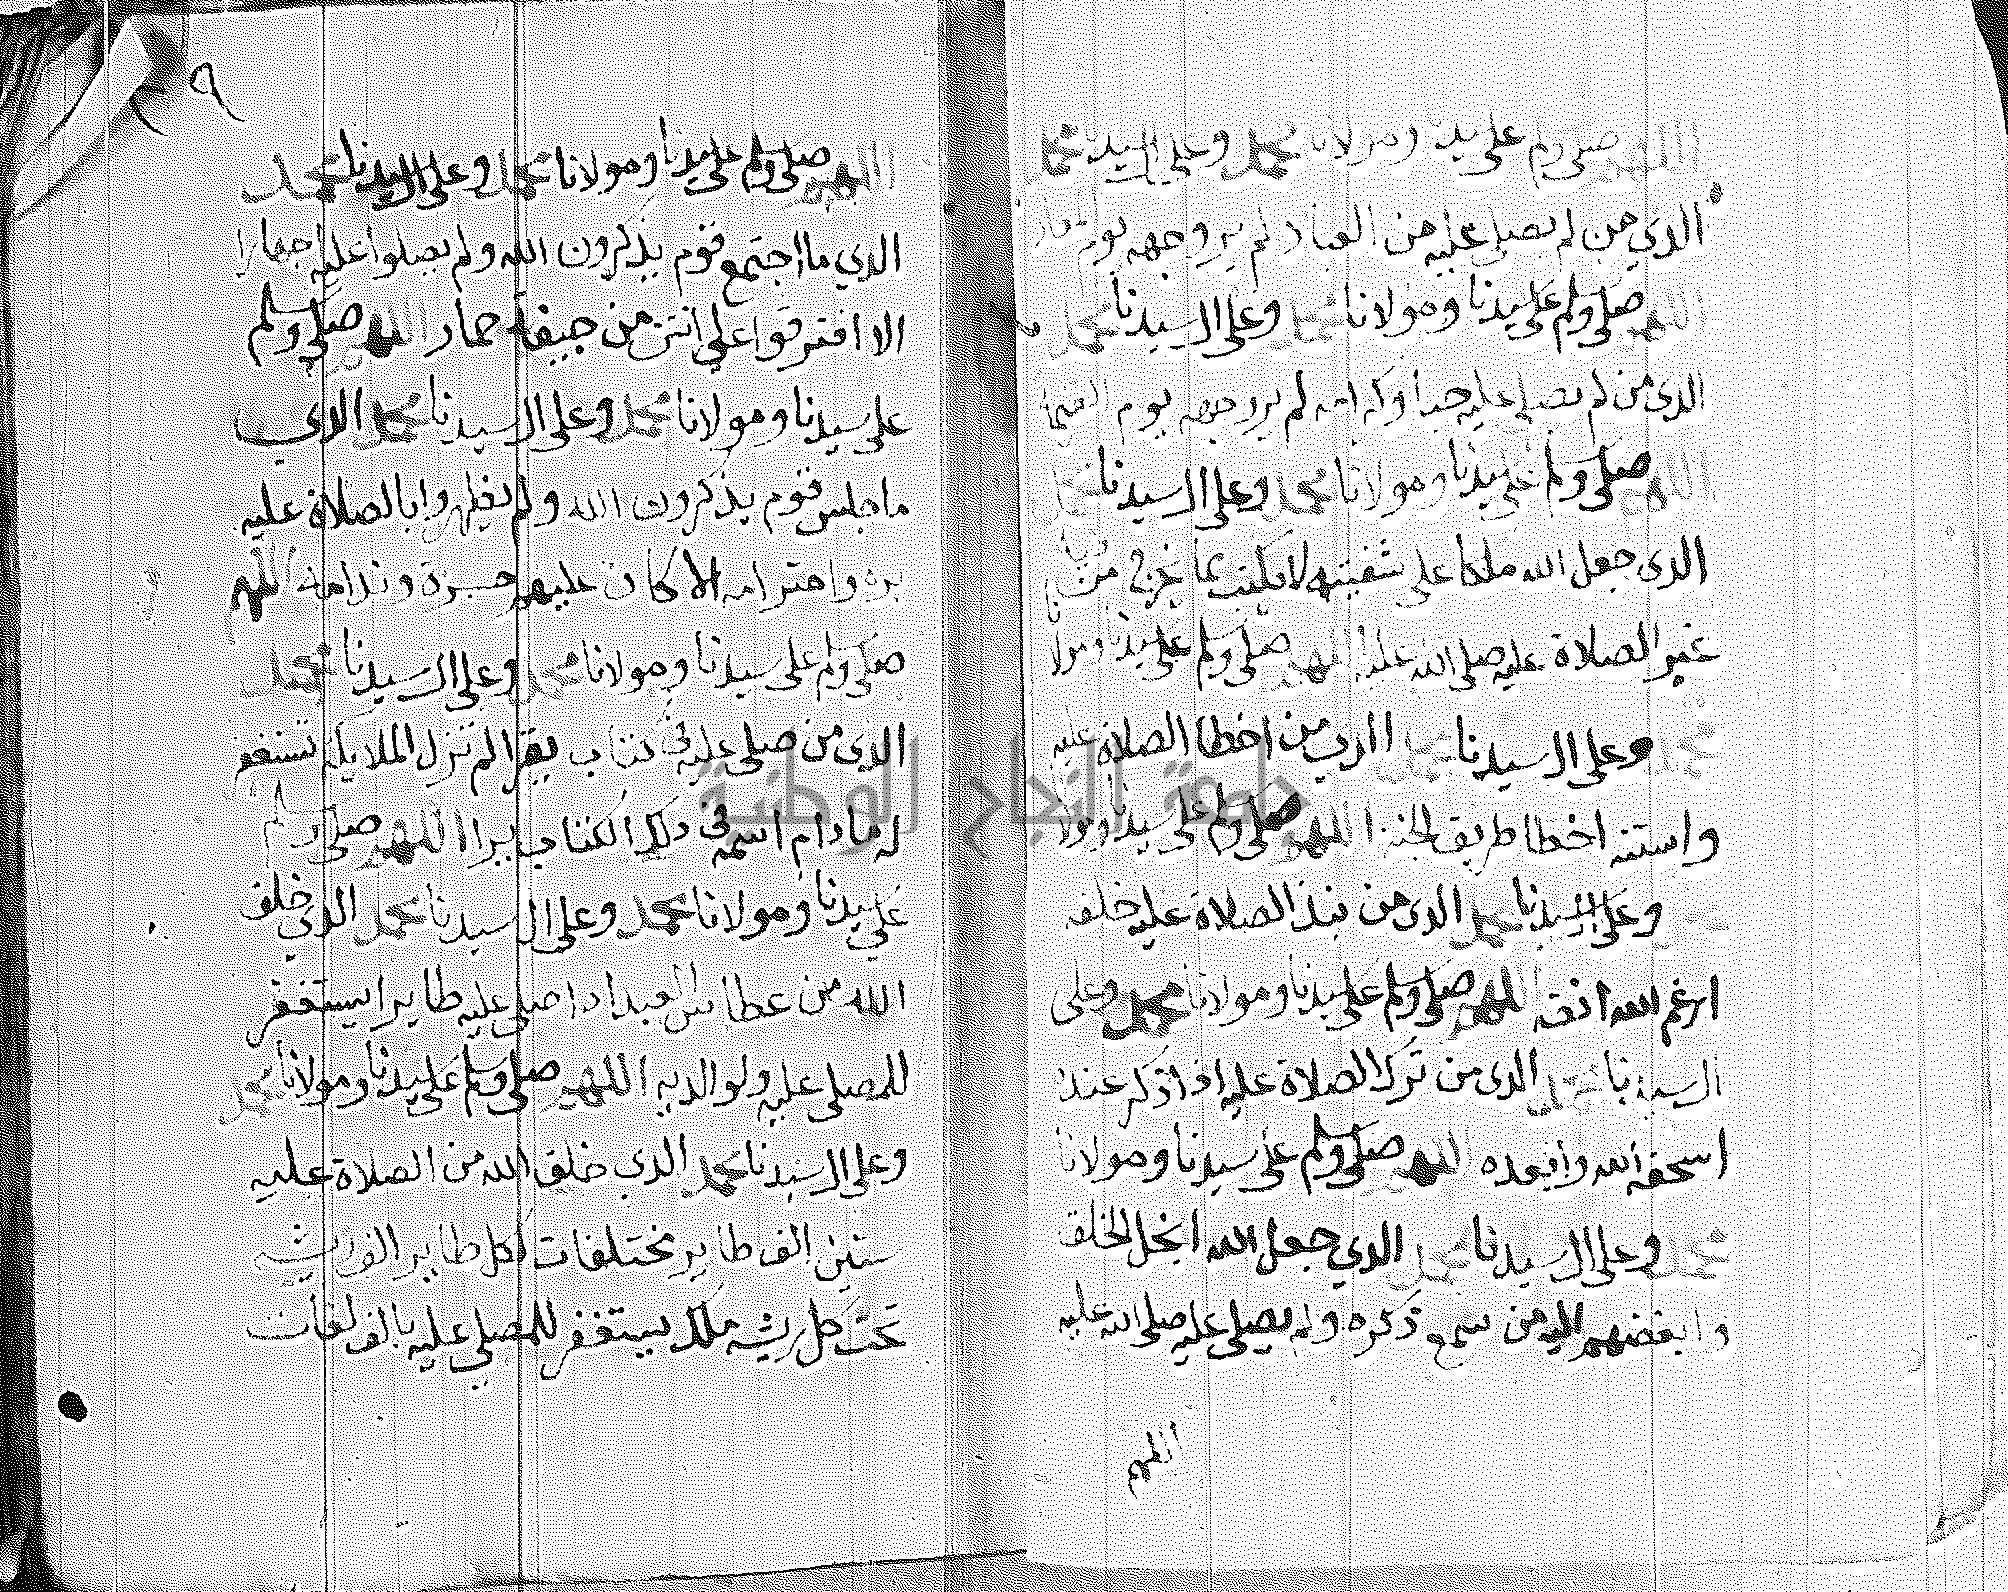 اللهم صلى وسلم على سيدنا ومولانا محمد وعلى ال سيدنا محمد
الذي من لم يصلي عليه من العباد لم ير وجهه يوم
اللهم صلى وسلم على سيدنا ومولانا محمد وعلى ال سيدنا محمد
الذي من لم يصلي عليه حبا وكرامه لم ير وجهه يوم القيمة
اللهم صلى وسلم على سيدنا ومولانا محمد وعلى ال سيدنا محمد
الذي جعل الله ملكا على شفيته لا يكتب بما يخرج من
غير الصلاة عليه صلى الله عليه اللهم صلى وسلم على سيدنا ومولانا
محمد وعلى ال سيدنا محمد الذي من اخطا الصلاة عليه
واستنه اخطا طريق الجنه اللهم صلى وسلم على سيدنا ومولانا
محمد وعلى ال سيدنا محمد الذي من نبذ الصلاة عليه خلفه
ارغم الله انفه اللهم صلى وسلم على سيدنا ومولانا محمد وعلى
ال سيدنا محمد الذي من ترك الصلاة عليه اذا ذكر عنده
اسحقه الله وابعده اللهم صلى وسلم على سيدنا ومولانا
محمد وعلى ال سيدنا محمد الذي جعل الله ابخل الخلق
وابغضهم اليه من سمع ذكره ولم يصلي عليه صلى الله عليه
اللهم
٩
اللهم صلى وسلم على سيدنا ومولانا محمد وعلى ال سيدنا محمد
الذي ما اجتمع قوم يذكرون الله ولم يصلوا عليه جهارا
الا افترقوا على انتن من جيفة حمار اللهم صلى وسلم
على سيدنا ومولانا محمد وعلى ال سيدنا محمد الذي
ما جلس قوم يذكرون الله ولم يظهروا بالصلاة عليه
بره واحترامه الا كان عليهم حسرة وندامة اللهم
صلى وسلم على سيدنا ومولانا محمد وعلى ال سيدنا محمد
الذي من صلى عليه في كتاب يقرا لم تزل الملايكة تستغفر
له مادام اسمه في ذلك الكتاب يرا اللهم صلى وسلم
على سيدنا ومولانا محمد وعلى ال سيدنا محمد الذي خلق
الله من عطاس العبد اذا صلى عليه طايرا يستغفر
للمصلي عليه ولوالديه اللهم صلى وسلم على سيدنا ومولانا محمد
وعلى ال سيدنا محمد الذي خلق الله من الصلاة عليه
ستين الف طاير مختلفات لكل طاير الف ريشه
تحت كل ريشه ملك يستغفر للمصلي عليه بالف لغات
جامعة النجاح الوطنية